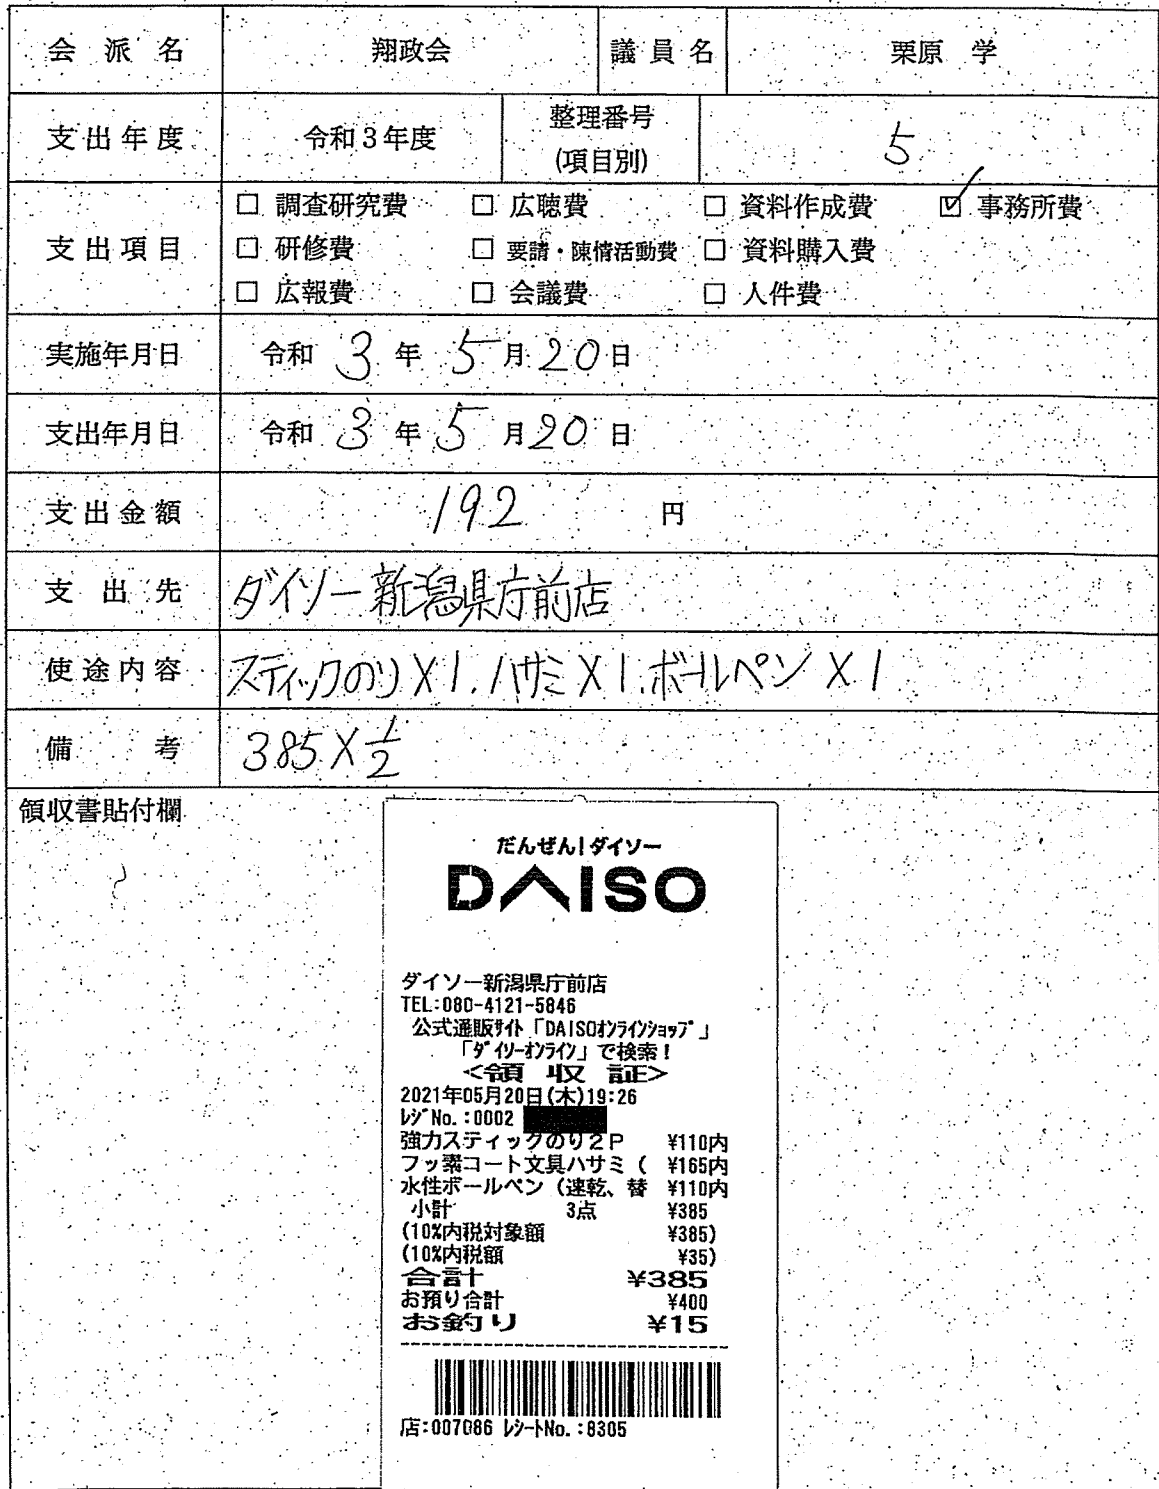 会派名 翔政会 議員名 栗原 学
支出年度 令和3年度 整理番号(項目別) 5
支出項目
□ 調査研究費 □ 広聴費 □ 資料作成費 ☑ 事務所費
□ 研修費 □ 要請・陳情活動費 □ 資料購入費
□ 広報費 □ 会議費 □ 人件費
実施年月日 令和 3 年 5 月 20 日
支出年月日 令和 3 年 5 月 20 日
支出金額 192 円
支出先 ダイソー新潟県庁前店
使途内容 スティックのり×1.ハサミ×1.ボールペン×1
備考 385×1/2
領収書貼付欄
だんぜん!ダイソー
DAISO
ダイソー新潟県庁前店
TEL:080-4121-5846
公式通販サイト「DAISOオンラインショップ」
「ダイソーオンライン」で検索!
<領収証>
2021年05月20日(木)19:26
レジNo.:0002
強力スティックのり2P ¥110内
フッ素コート文具ハサミ( ¥165内
水性ボールペン(速乾、替 ¥110内
小計 3点 ¥385
(10%内税対象額 ¥385)
(10%内税額 ¥35)
合計 ¥385
お預り合計 ¥400
お釣り ¥15
店:007086 レシートNo.:8305